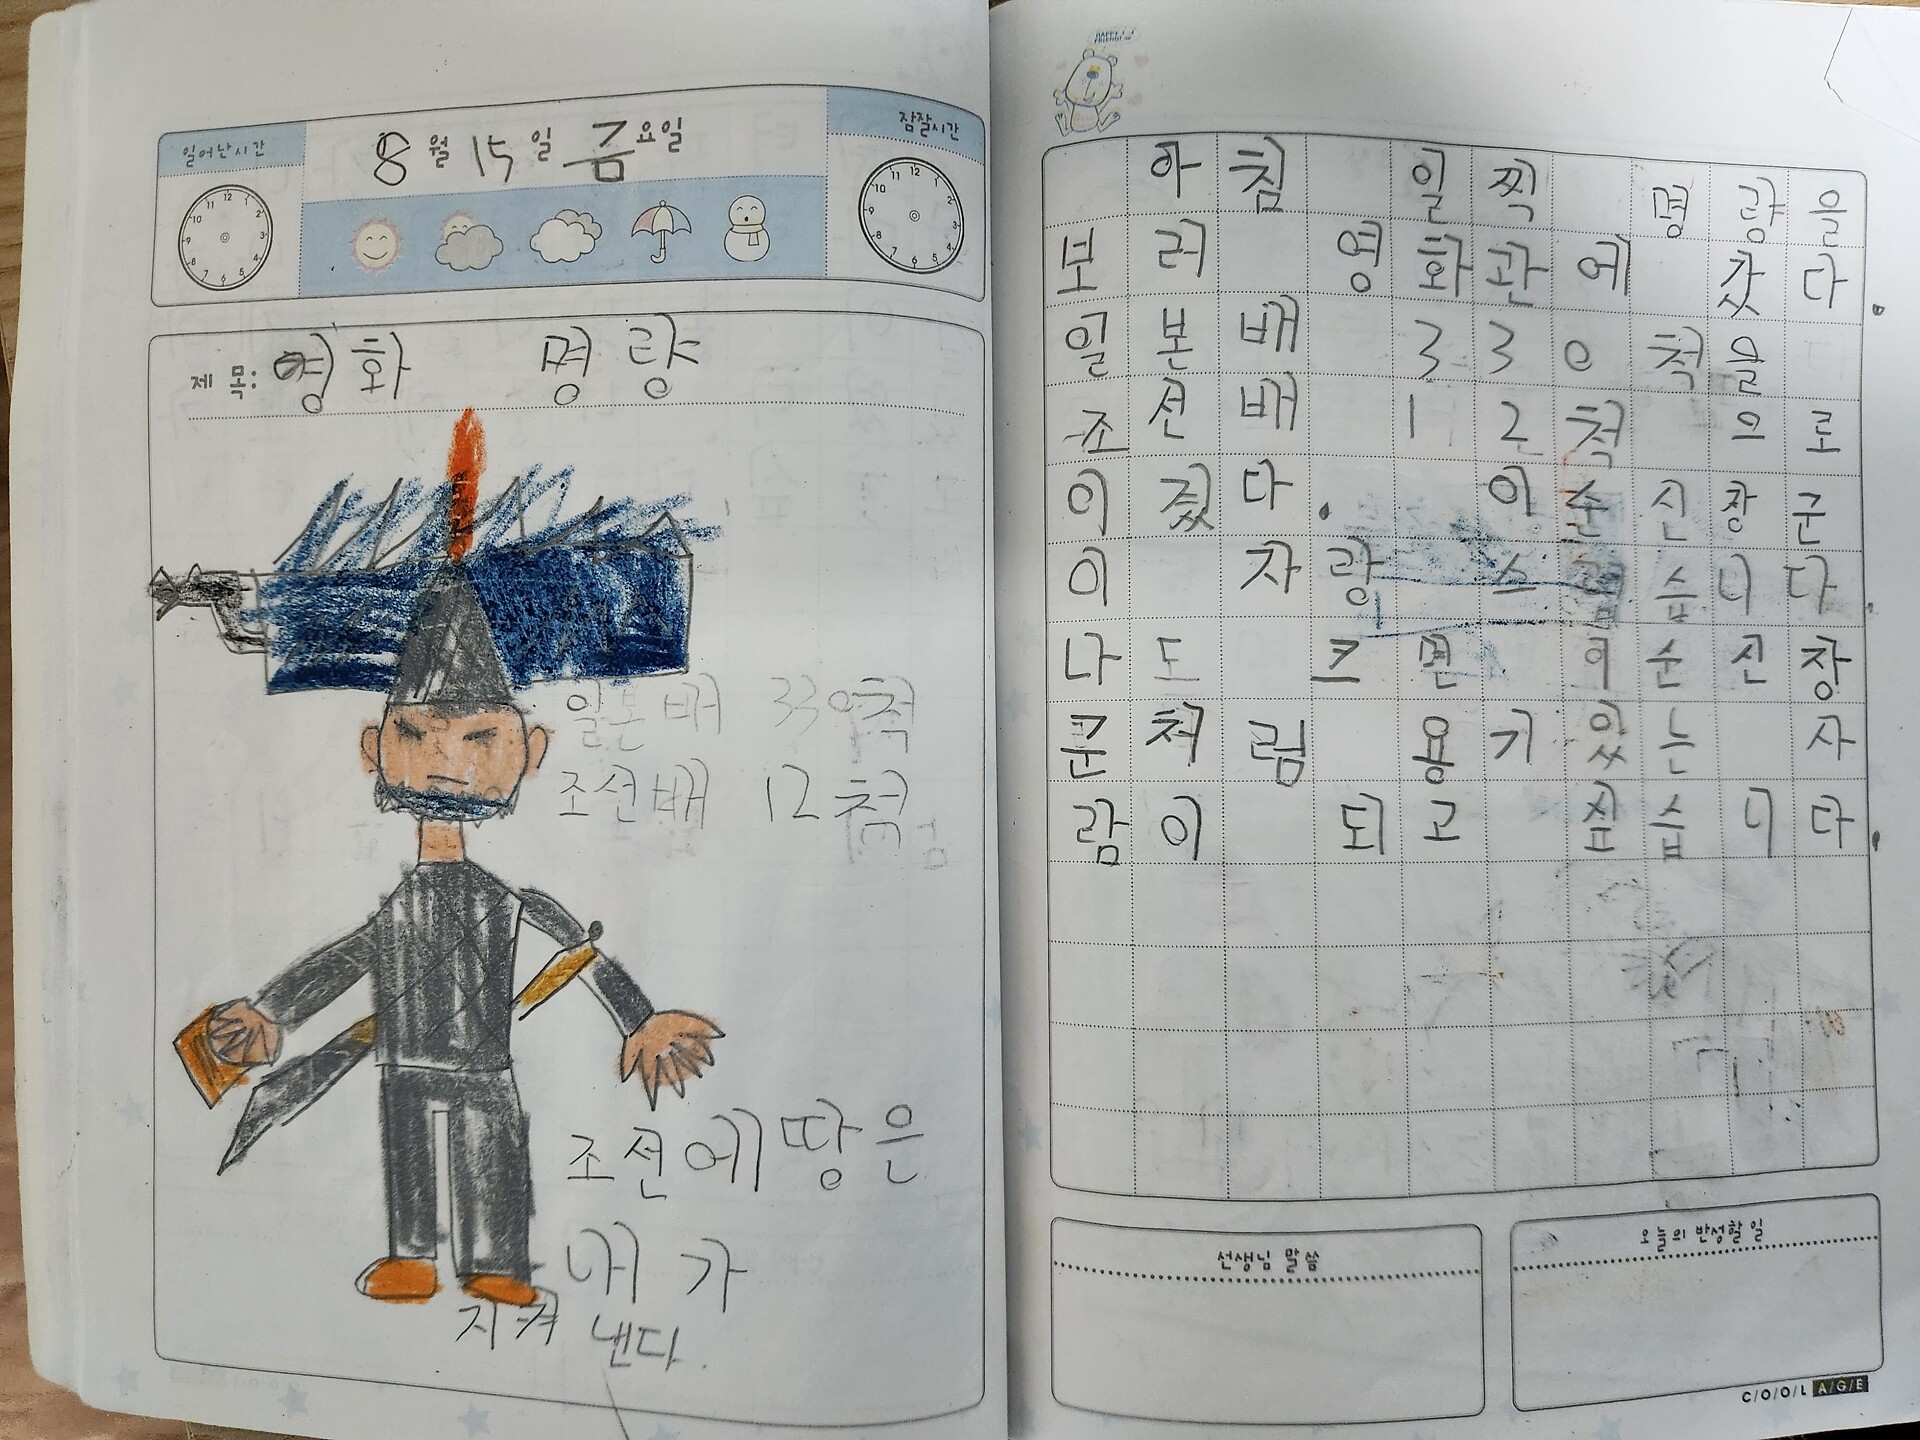 일어난시간
8월 15일 금요일
잠잘시간
제 목: 영화 명량
일본배 330척
조선배 12척
조선에 땅은
내가
지켜 낸다.
HAPPY FRIEND!
아침 일찍 명량을
보러 영화관에 갔다.
일본배 330척을
조선배 12척 으로
이겼다. 이순신장군
이 자랑 스럽습니다.
나도 크면 이순신장
군처럼 용기있는 사
람이 되고 싶습니다.
선생님 말씀
오늘의 반성할 일
C/O/O/L A/G/E